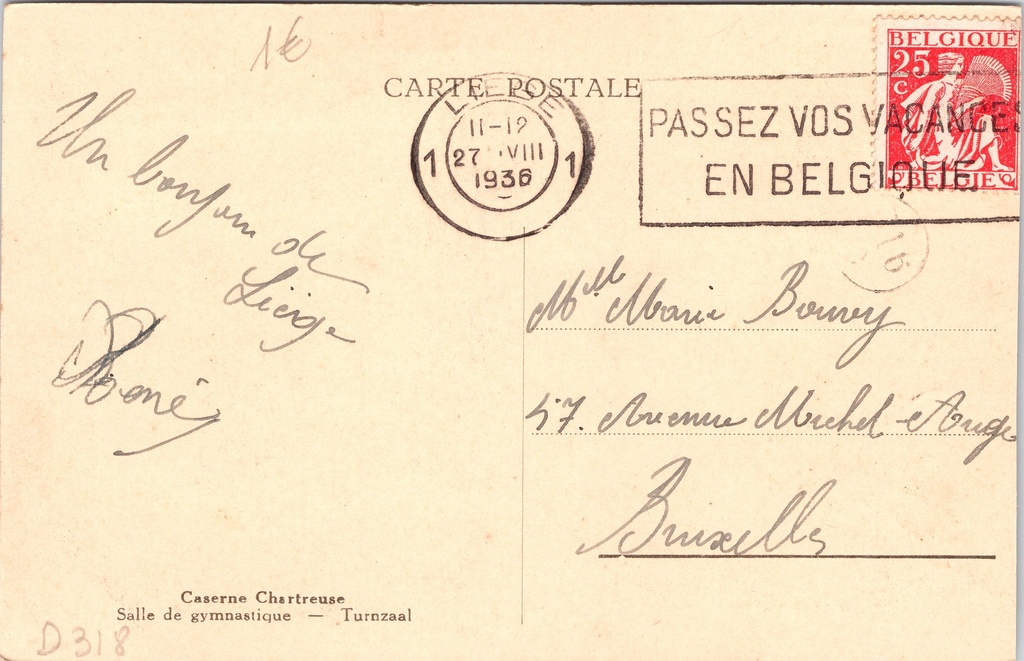 1€
CARTE POSTALE
BELGIQUE
25
C
BELGIE
LIEGE
11-12
1 27 VIII 1
1936
PASSEZ VOS VACANCES
EN BELGIQUE
16
Un bonjour de
Liège
René
Mlle Marie Bouvy
57. Avenue Michel-Ange
Bruxelles
Caserne Chartreuse
Salle de gymnastique — Turnzaal
D 318